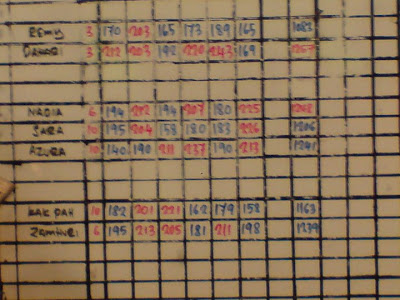 REMY 3 170 203 165 173 189 165 1083
DAHARI 3 212 203 192 220 243 169 1257
NADIA 6 194 212 194 207 180 225 1248
SARA 10 195 204 158 180 183 226 1206
AZURA 10 140 190 211 237 190 213 1241
KAK PAH 10 182 201 221 162 179 158 1163
ZAMHURI 6 195 213 205 181 211 198 1239